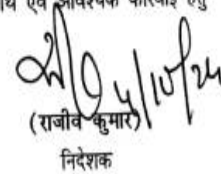 एवं आवश्यक कार्रवाई हेतु
5/10/24
(राजीव कुमार)
निदेशक